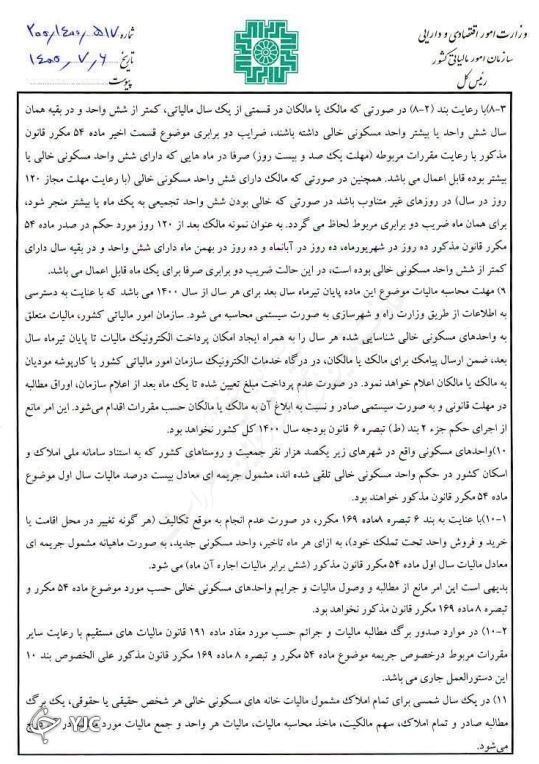 وزارت امور اقتصادی و دارایی
سازمان امور مالیاتی کشور
رئیس کل
شماره ۲۰۰/۱۴۰۰/۵۱۷
تاریخ ۱۴۰۰/۷/۶
پیوست
۸-۳) با رعایت بند (۲-۸) در صورتی که مالک یا مالکان در قسمتی از یک سال مالیاتی، کمتر از شش واحد و در بقیه همان
سال شش واحد یا بیشتر واحد مسکونی خالی داشته باشند، ضرایب دو برابری موضوع قسمت اخیر ماده ۵۴ مکرر قانون
مذکور با رعایت مقررات مربوطه (مهلت یک صد و بیست روز) صرفا در ماه هایی که دارای شش واحد مسکونی خالی یا
بیشتر بوده قابل اعمال می باشد. همچنین در صورتی که مالک دارای شش واحد مسکونی خالی (با رعایت مهلت مجاز ۱۲۰
روز در سال) در روزهای غیر متناوب باشد در صورتی که خالی بودن شش واحد تجمیعی به یک ماه یا بیشتر منجر شود،
برای همان ماه ضریب دو برابری مربوط لحاظ می گردد. به عنوان نمونه مالک بعد از ۱۲۰ روز مورد حکم در صدر ماده ۵۴
مکرر قانون مذکور ده روز در شهریورماه، ده روز در آبانماه و ده روز در بهمن ماه دارای شش واحد و در بقیه سال دارای
کمتر از شش واحد مسکونی خالی بوده است، در این حالت ضریب دو برابری صرفا برای یک ماه قابل اعمال می باشد.
۹) مهلت محاسبه مالیات موضوع این ماده پایان تیرماه سال بعد برای هر سال از سال ۱۴۰۰ می باشد که با عنایت به دسترسی
به اطلاعات از طریق وزارت راه و شهرسازی به صورت سیستمی محاسبه می شود. سازمان امور مالیاتی کشور، مالیات متعلق
به واحدهای مسکونی خالی شناسایی شده هر سال را به همراه ایجاد امکان پرداخت الکترونیک مالیات تا پایان تیرماه سال
بعد، ضمن ارسال پیامک برای مالک یا مالکان، در درگاه خدمات الکترونیک سازمان امور مالیاتی کشور یا کارپوشه مودیان
به مالک یا مالکان اعلام خواهد نمود. در صورت عدم پرداخت مبلغ تعیین شده تا یک ماه بعد از اعلام سازمان، اوراق مطالبه
در مهلت قانونی و به صورت سیستمی صادر و نسبت به ابلاغ آن به مالک یا مالکان حسب مقررات اقدام می‌شود. این امر مانع
از اجرای حکم جزء ۲ بند (ط) تبصره ۶ قانون بودجه سال ۱۴۰۰ کل کشور نخواهد بود.
۱۰) واحدهای مسکونی واقع در شهرهای زیر یکصد هزار نفر جمعیت و روستاهای کشور که به استناد سامانه ملی املاک و
اسکان کشور در حکم واحد مسکونی خالی تلقی شده اند، مشمول جریمه ای معادل بیست درصد مالیات سال اول موضوع
ماده ۵۴ مکرر قانون مذکور خواهند بود.
۱۰-۱) با عنایت به بند ۶ تبصره ۸ ماده ۱۶۹ مکرر، در صورت عدم انجام به موقع تکالیف (هر گونه تغییر در محل اقامت یا
خرید و فروش واحد تحت تملک خود)، به ازای هر ماه تاخیر، واحد مسکونی جدید، به صورت ماهیانه مشمول جریمه ای
معادل مالیات سال اول ماده ۵۴ مکرر قانون مذکور (شش برابر مالیات اجاره آن ماه) می شود.
بدیهی است این امر مانع از مطالبه و وصول مالیات و جرایم واحدهای مسکونی خالی حسب مورد موضوع ماده ۵۴ مکرر و
تبصره ۸ ماده ۱۶۹ مکرر قانون مذکور نخواهد بود.
۱۰-۲) در موارد صدور برگ مطالبه مالیات و جرائم حسب مورد مفاد ماده ۱۹۱ قانون مالیات های مستقیم با رعایت سایر
مقررات مربوط درخصوص جریمه موضوع ماده ۵۴ مکرر و تبصره ۸ ماده ۱۶۹ مکرر قانون مذکور علی الخصوص بند ۱۰
این دستورالعمل جاری می باشد.
۱۱) در یک سال شمسی برای تمام املاک مشمول مالیات خانه های مسکونی خالی هر شخص حقیقی یا حقوقی، یک برگ
مطالبه صادر و تمام املاک، سهم مالکیت، ماخذ محاسبه مالیات، مالیات هر واحد و جمع مالیات مورد
می‌شود.
YJC